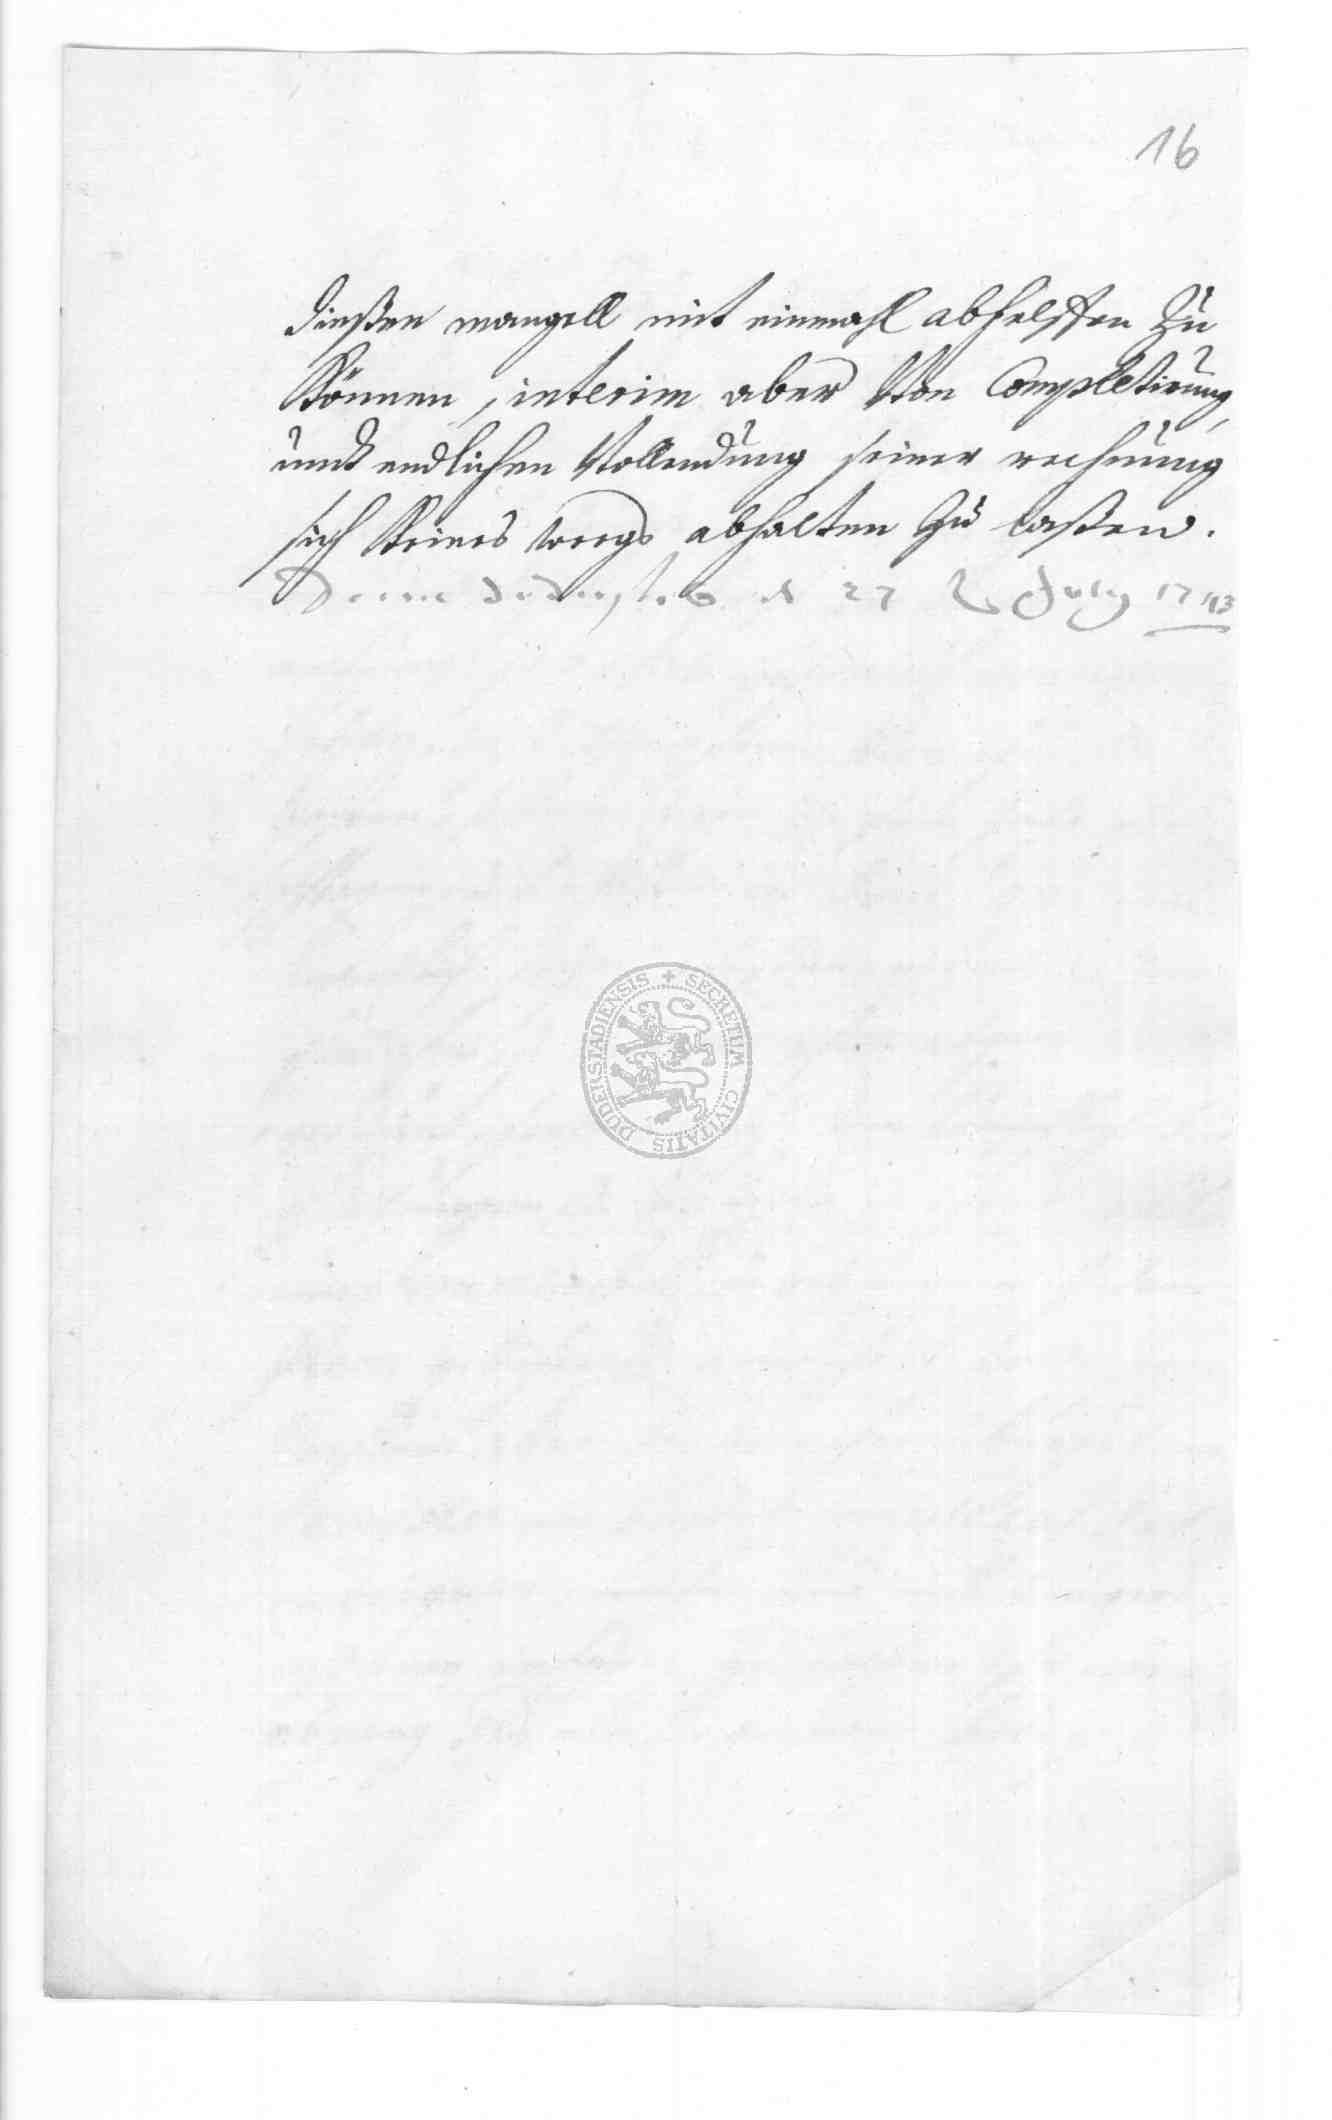 16
dießen mangell mit einmahl abhelffen zu
können, interim aber von Completirung,
undt endlichen Vollendung seiner rechnung
sich keines weegs abhalten zu laßen.
27 July 1743
SECRETUM CIVITATIS DUDERSTADIENSIS